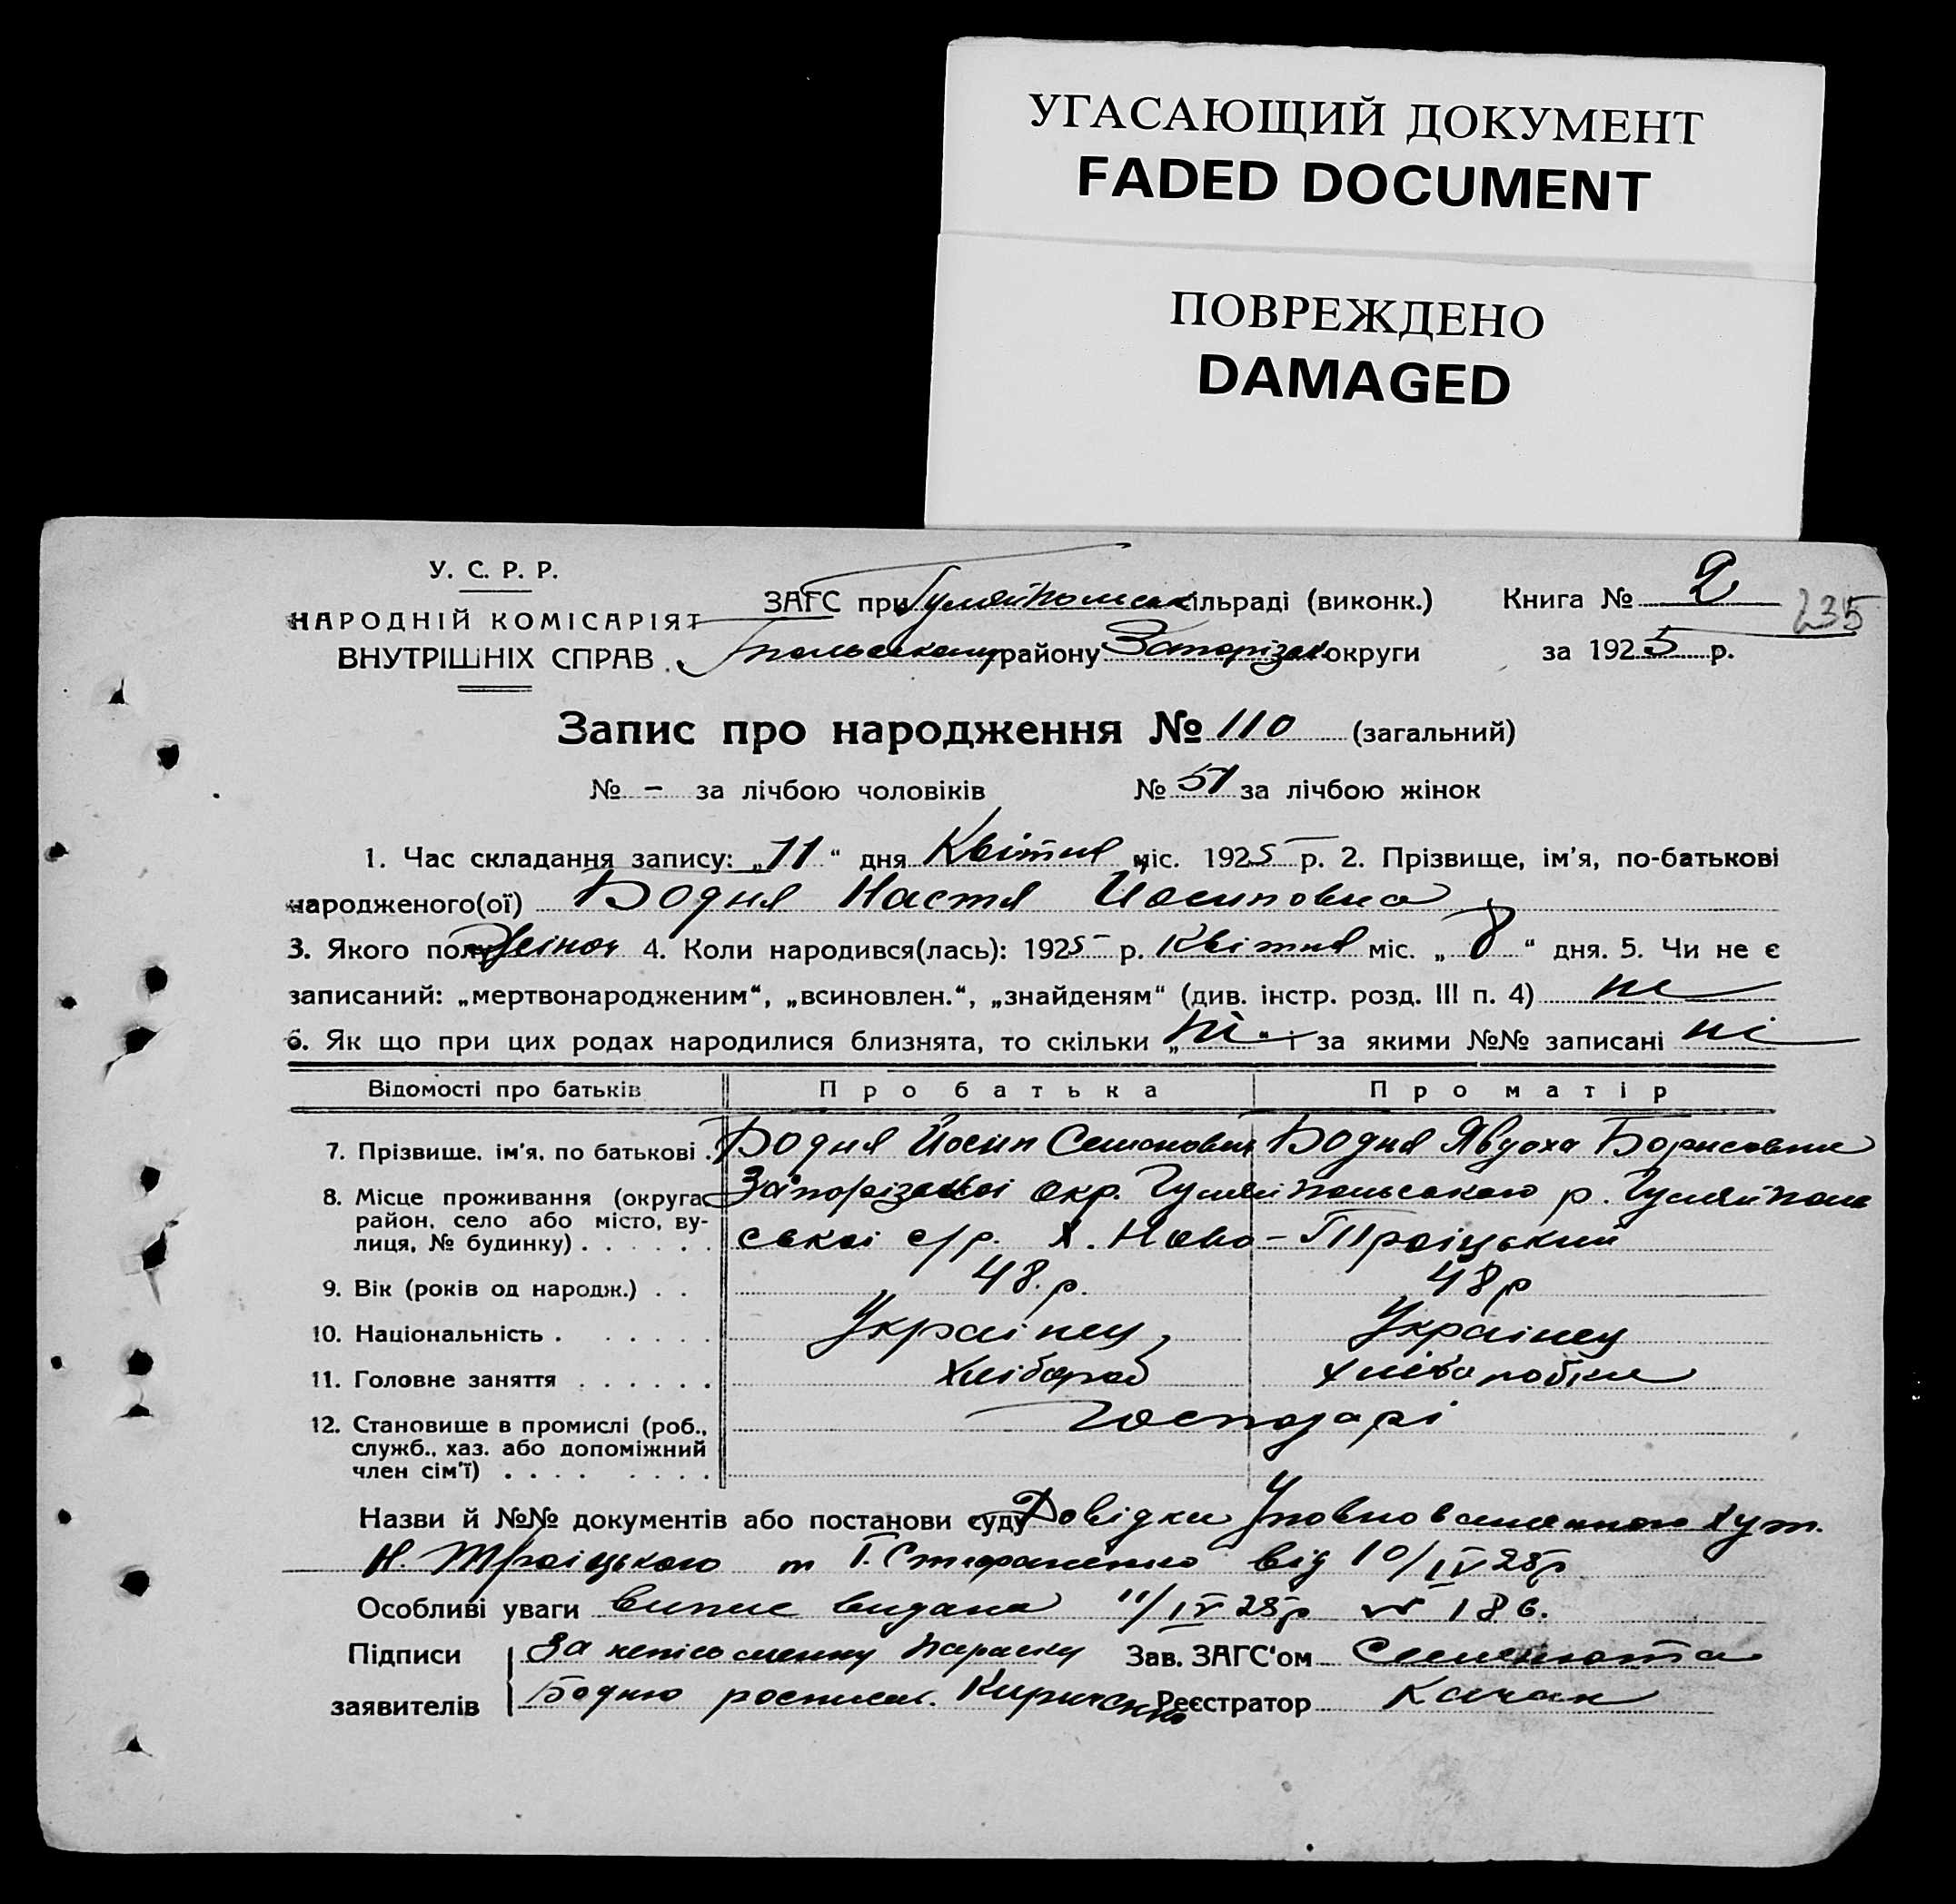 УГАСАЮЩИЙ ДОКУМЕНТ
FADED DOCUMENT
ПОВРЕЖДЕНО
DAMAGED
У. С. Р. Р.
НАРОДНІЙ КОМІСАРІЯТ
ВНУТРІШНІХ СПРАВ.
ЗАГС при Гуляйпольск сільраді (виконк.) Книга № 2
235
польському району Запорізьк округи за 1925 р.
Запис про народження № 110 (загальний)
№ – за лічбою чоловіків № 51 за лічбою жінок
1. Час складання запису: „11“ дня Квітня міс. 1925 р. 2. Прізвище, ім'я, по-батькові
народженого(ої) Бодня Настя Йосиповна
3. Якого полу жіноч 4. Коли народився(лась): 1925 р. Квітня міс. „8“ дня. 5. Чи не є
записаний: „мертвонародженим“, „всиновлен.“, „знайденям“ (див. інстр. розд. III п. 4) не
6. Як що при цих родах народилися близнята, то скільки „ні“ і за якими №№ записані ні
Відомості про батьків Про батька Про матір
7. Прізвище, ім'я, по батькові . Бодня Йосип Семонович Бодня Явдоха Борисовна
8. Місце проживання (округа, район, село або місто, вулиця, № будинку) . . . . . . Запорізської окр. Гуляйпольського р. Гуляйполь
ської с/р. х. Ново-Троіцький
9. Вік (років од народж.) . . 48 р. 48 р
10. Національність . . . . . . Українец Українец
11. Головне заняття . . . . . . Хлібороб Хліборобка
12. Становище в промислі (роб., служб., хаз. або допоміжний член сім'ї) . . . . . . . . Господарі
Назви й №№ документів або постанови суду Довідки Уповноваженного хут.
Н. Троіцького т Г. Стефаненко від 10/IV 25р
Особливі уваги Випис видана 11/IV 25р № 186.
Підписи За неписьменну Параску Зав. ЗАГС'ом
заявителів Бодню росписал. Кириченко Реєстратор Качан